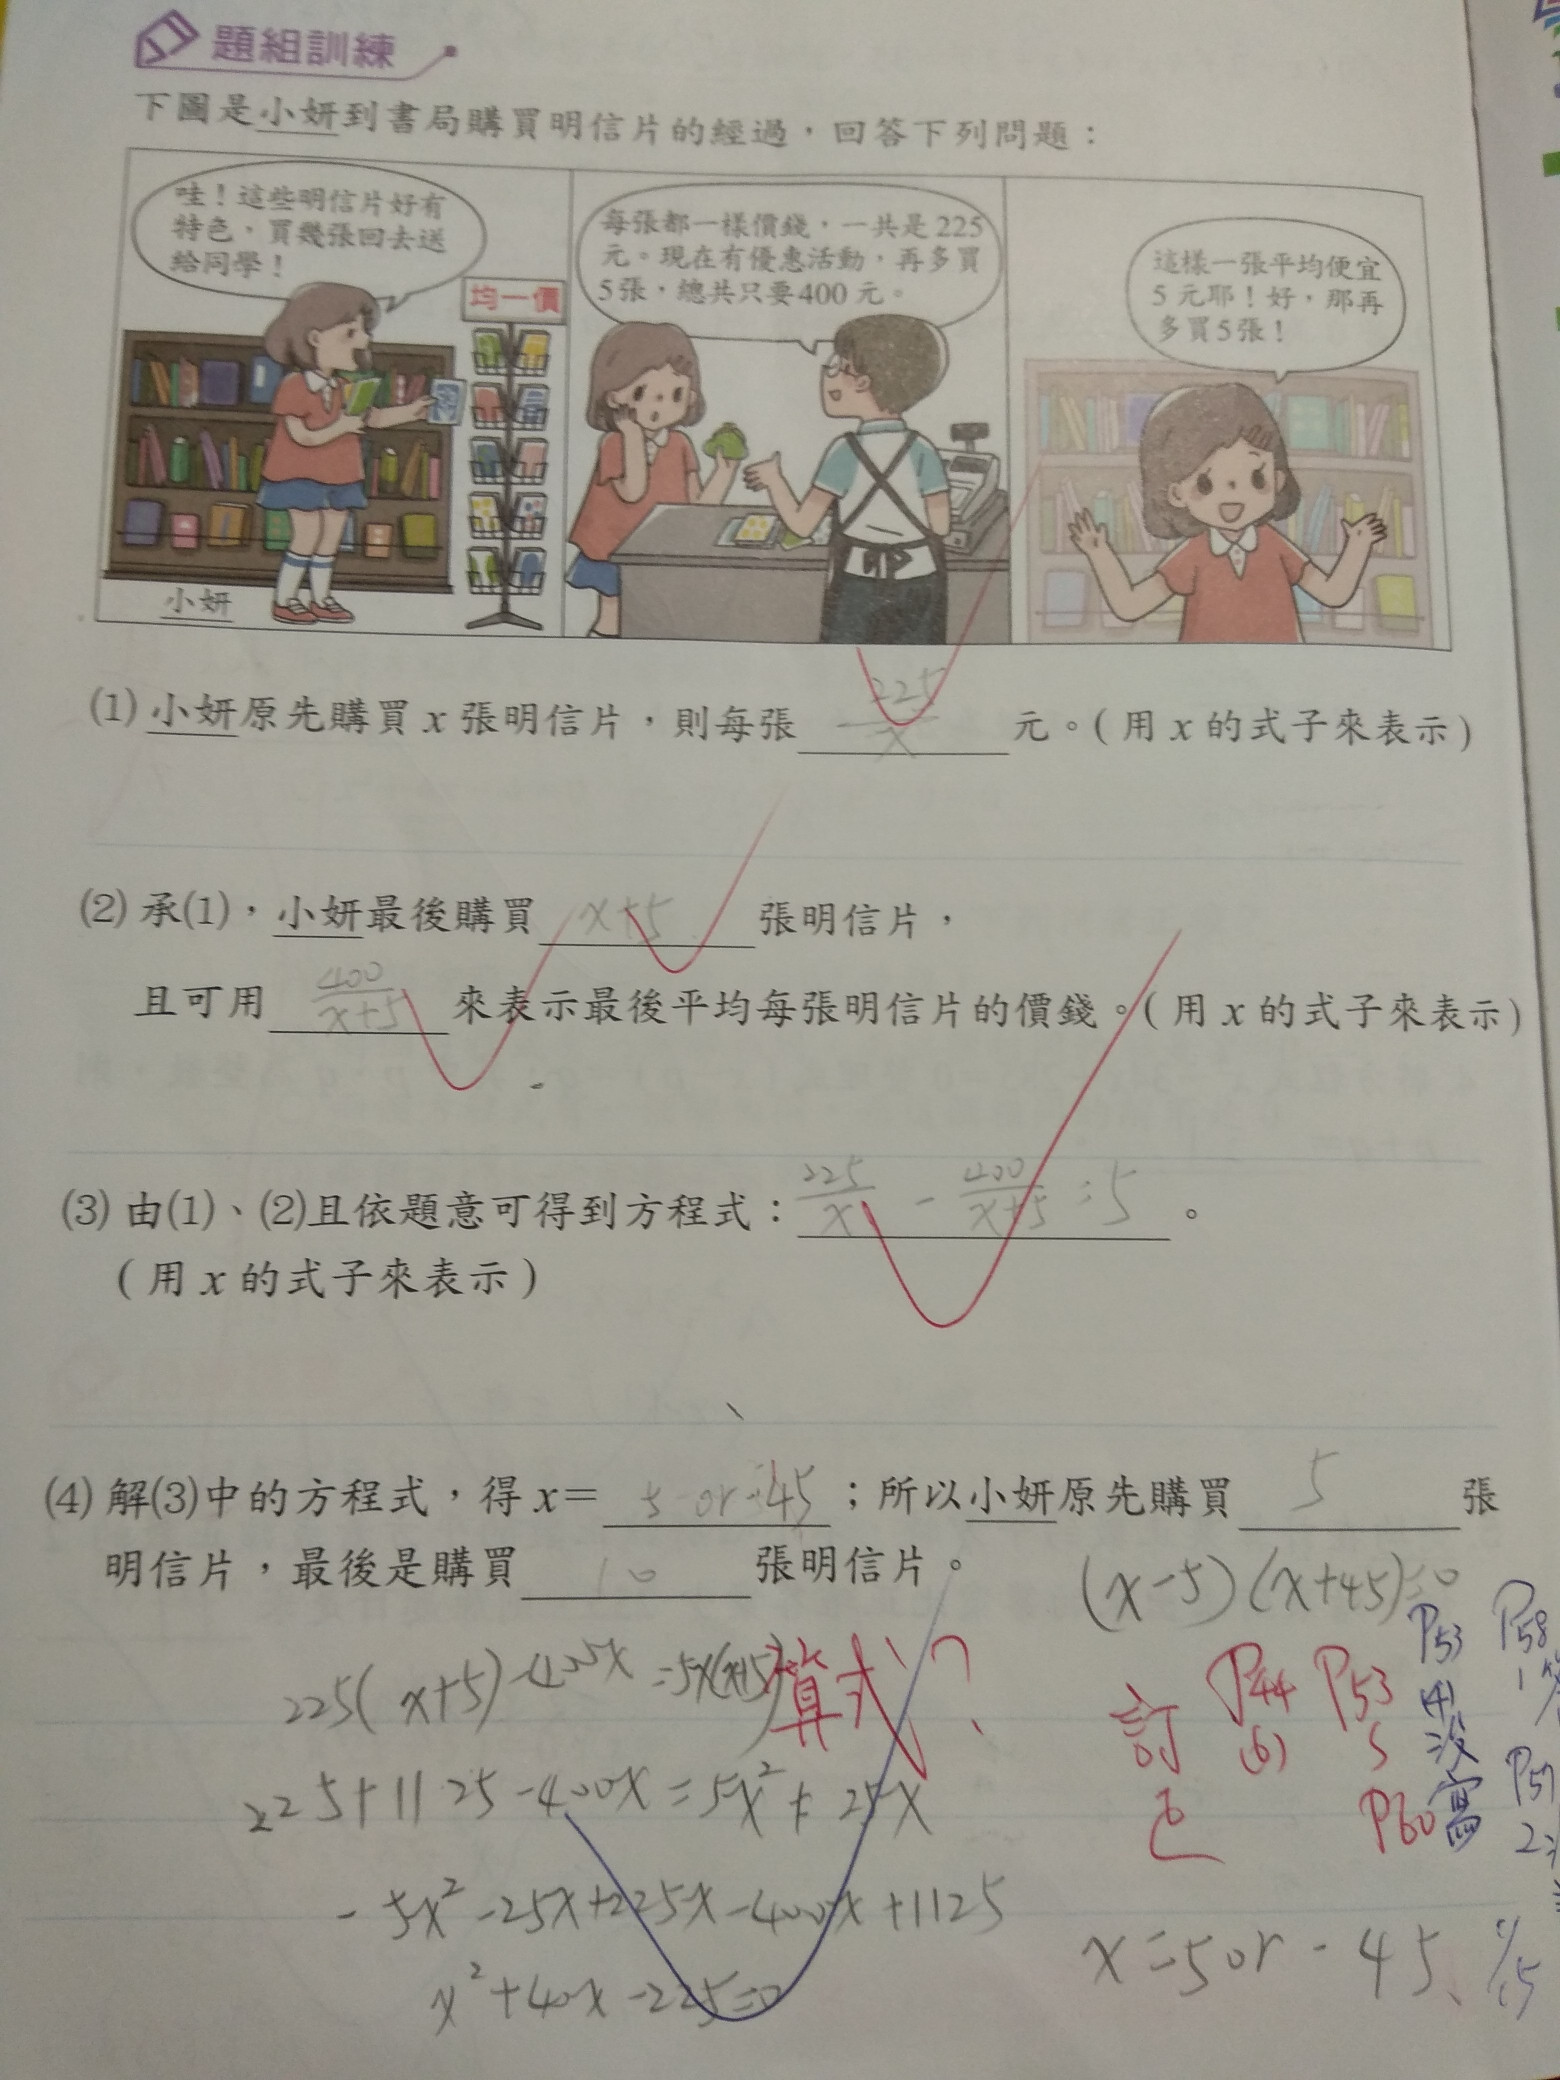 題組訓練
下圖是小妍到書局購買明信片的經過，回答下列問題：
哇！這些明信片好有
特色，買幾張回去送
給同學！
均一價
小妍
每張都一樣價錢，一共是225
元。現在有優惠活動，再多買
5張，總共只要400元。
這樣一張平均便宜
5元耶！好，那再
多買5張！
(1) 小妍原先購買 x 張明信片，則每張 225/x 元。(用 x 的式子來表示)
(2) 承(1)，小妍最後購買 x+5 張明信片，
且可用 400/x+5 來表示最後平均每張明信片的價錢。(用 x 的式子來表示)
(3) 由(1)、(2)且依題意可得到方程式：225/x - 400/x+5 = 5。
(用 x 的式子來表示)
(4) 解(3)中的方程式，得 x＝ 5 or -45；所以小妍原先購買 5 張
明信片，最後是購買 10 張明信片。
(x-5)(x+45)=0
225(x+5)-400x=5x(x+5)
算式？
225+1125-400x=5x²+25x
-5x²-25x+225x-400x+1125
x²+40x-225=0
x=5 or -45
訂
P44
(6)
P53
5
P60
P53
(4)
沒
寫
P58
1
P57
2